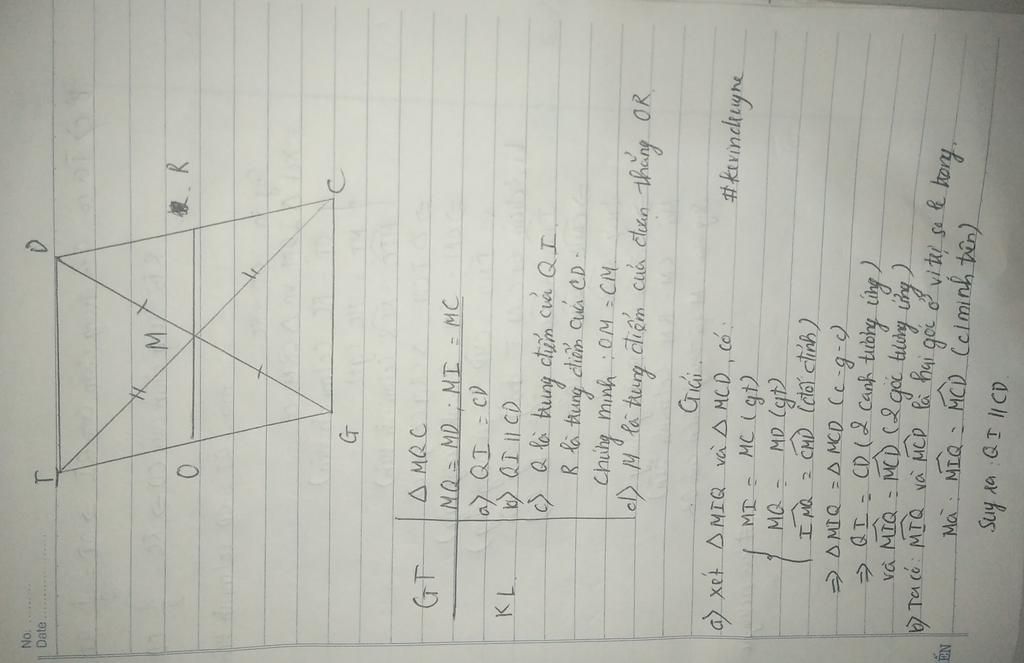 No.
Date
I D
M
O R
G C
GT △MQC
MQ = MD; MI = MC
KL a) QI = CD
b) QI // CD
c) O là trung điểm của QI
R là trung điểm của CD.
Chứng minh: OM = CM
d) M là trung điểm của đoạn thẳng OR
Giải.
a) Xét △MIQ và △MCD, có:
MI = MC (gt)
MQ = MD (gt)
IMQ = CMD (đối đỉnh)
#kevinchuyne
⇒ △MIQ = △MCD (c-g-c)
⇒ QI = CD (2 cạnh tương ứng)
và MIQ = MCD (2 góc tương ứng)
b) Ta có: MIQ và MCD là hai góc ở vị trí so le trong.
Mà: MIQ = MCD (c/minh trên)
Suy ra: QI // CD.
ẾN